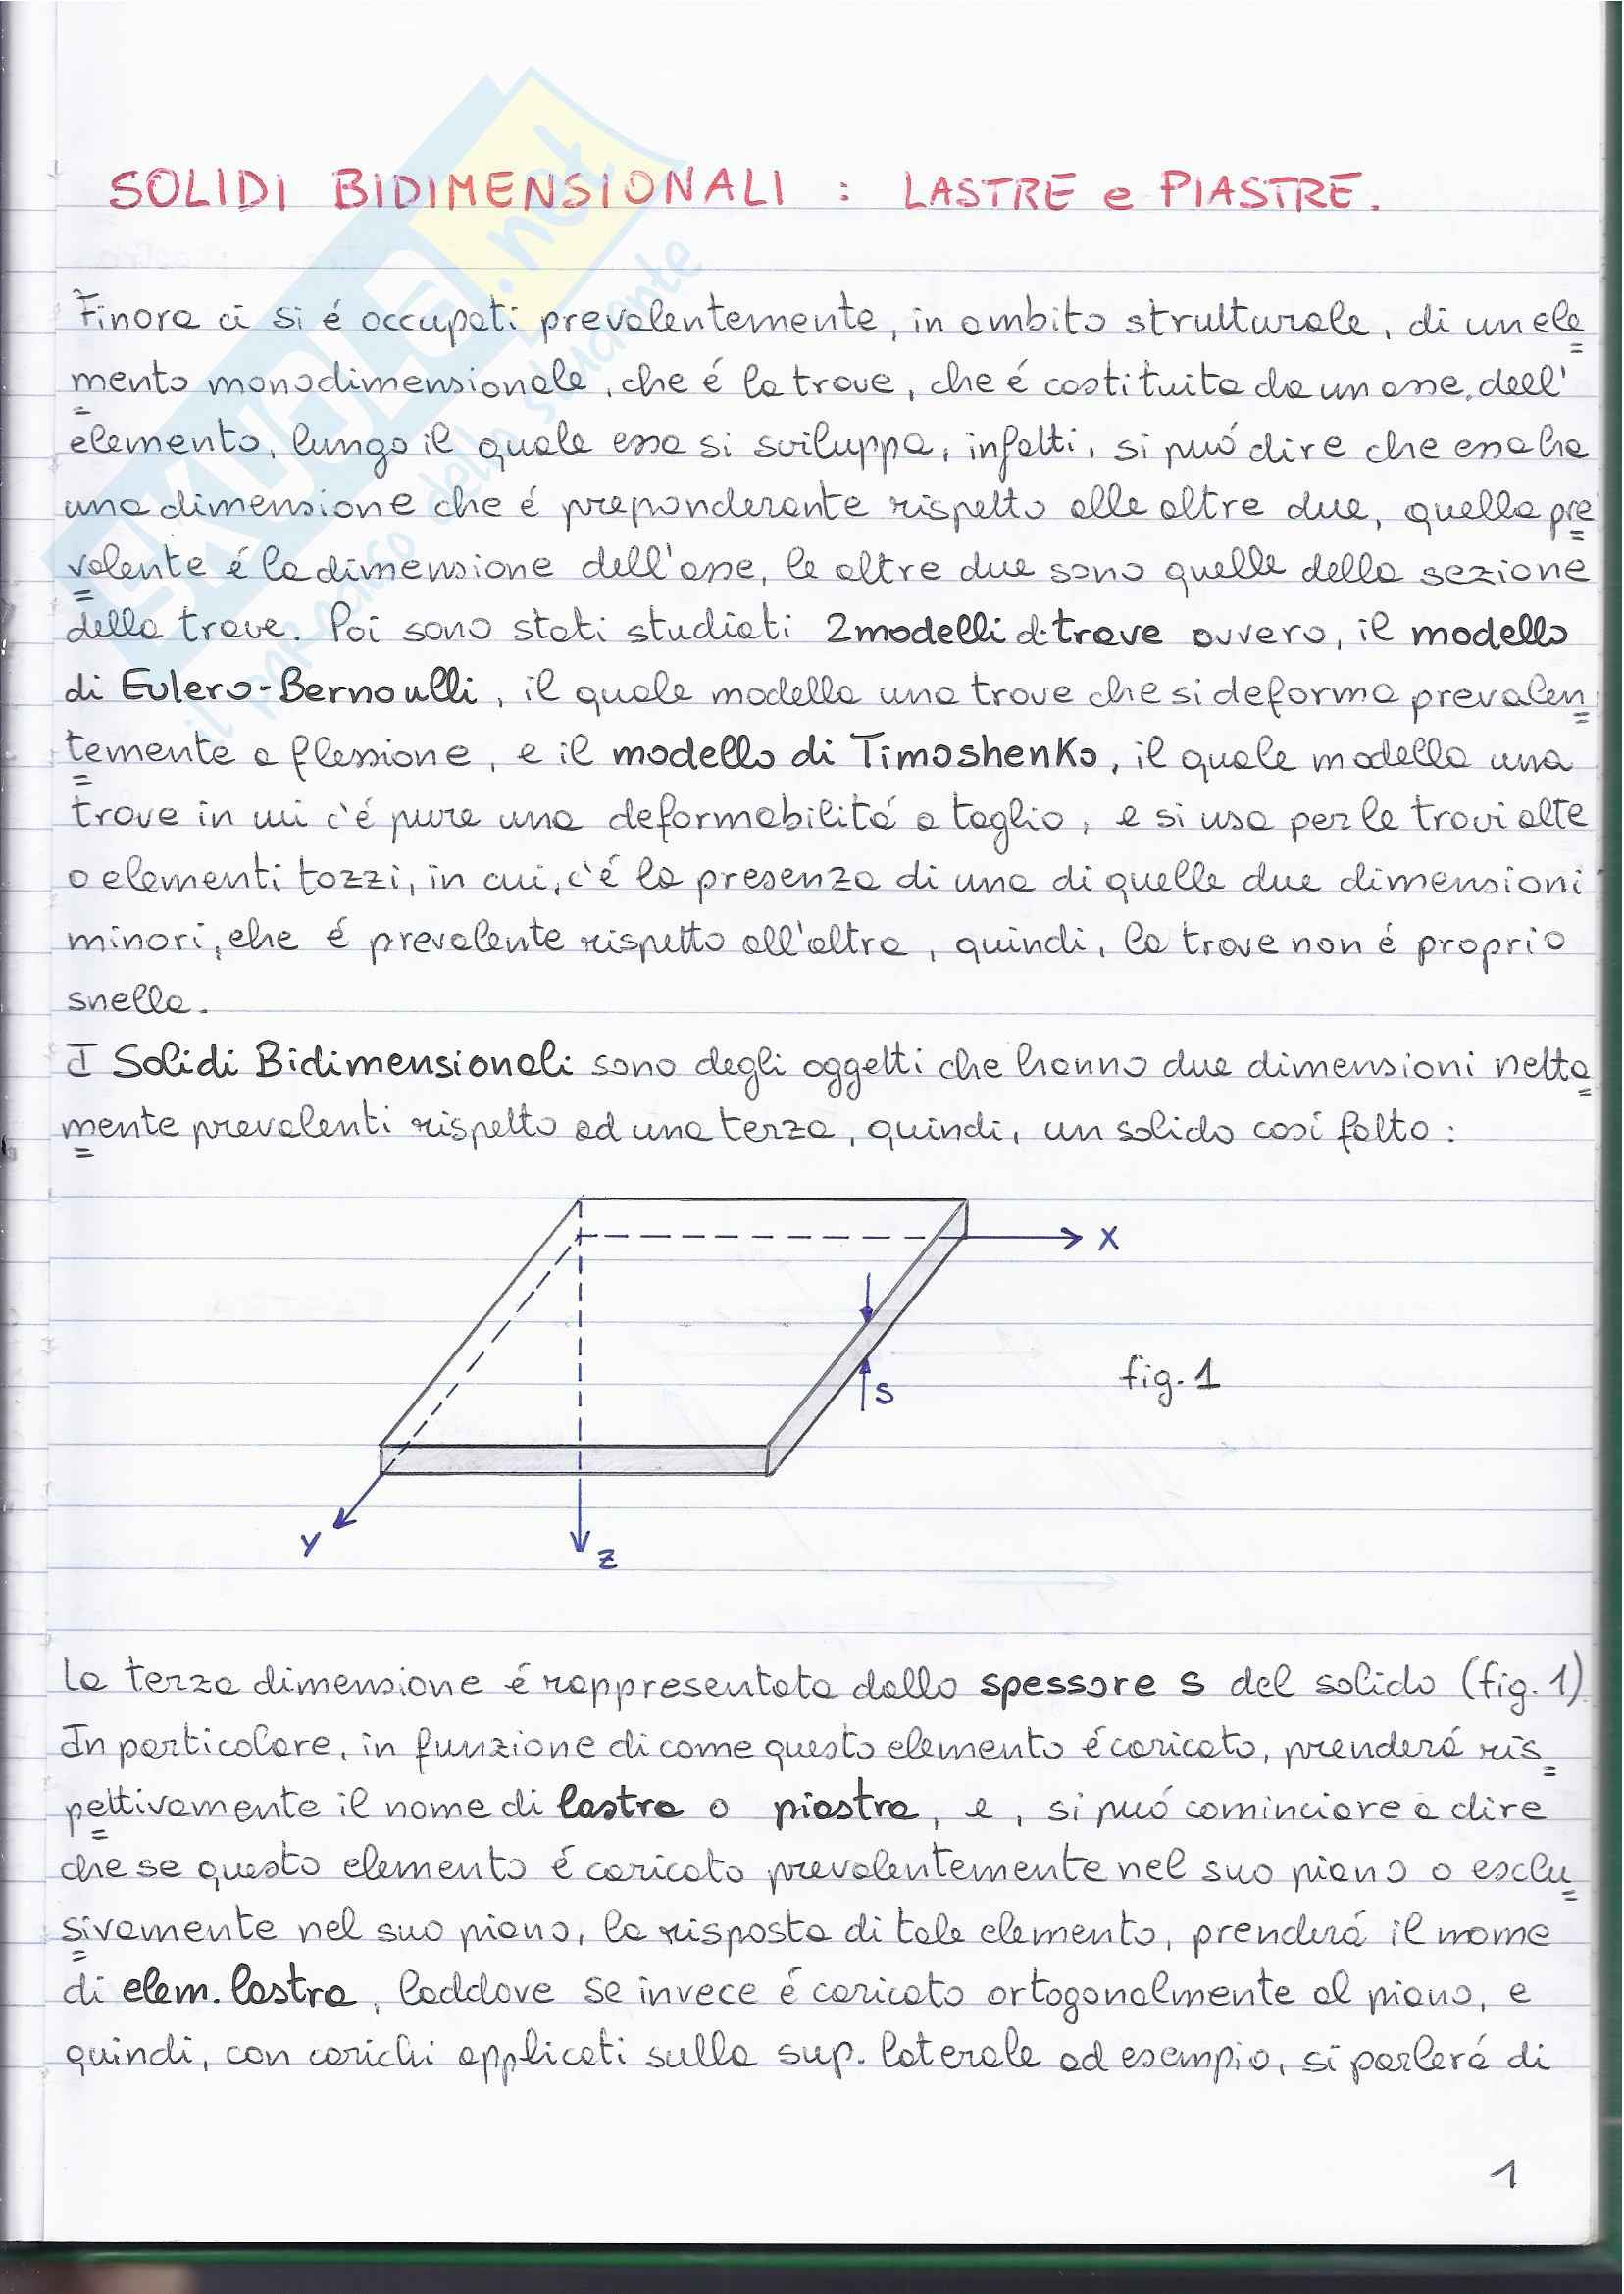 SOLIDI BIDIMENSIONALI : LASTRE e PIASTRE.
Finora ci si é occupati prevalentemente, in ambito strutturale, di un ele
mento monodimensionale, che é la trave, che é costituita da un asse, dell'
elemento, lungo il quale essa si sviluppa, infatti, si puó dire che essa ha
una dimensione che é preponderante rispetto alle altre due, quella pre
valente é la dimensione dell'asse, le altre due sono quelle della sezione
della trave. Poi sono stati studiati 2 modelli di trave ovvero, il modello
di Eulero-Bernoulli, il quale modella una trave che si deforma prevalen
temente a flessione, e il modello di Timoshenko, il quale modella una
trave in cui c'é pure una deformabilitá a taglio, e si usa per le travi alte
o elementi tozzi, in cui, c'é la presenza di una di quelle due dimensioni
minori, che é prevalente rispetto all'altra, quindi, la trave non é proprio
snella.
I Solidi Bidimensionali sono degli oggetti che hanno due dimensioni netta
mente prevalenti rispetto ad una terza, quindi, un solido cosí fatto:
X
S
fig. 1
Y
Z
La terza dimensione é rappresentata dallo spessore s del solido (fig. 1)
In particolare, in funzione di come questo elemento é caricato, prenderá ris
pettivamente il nome di lastra o piastra, e, si puó cominciare a dire
che se questo elemento é caricato prevalentemente nel suo piano o esclu
sivamente nel suo piano, la risposta di tale elemento, prenderá il nome
di elem. lastra, laddove se invece é caricato ortogonalmente al piano, e
quindi, con carichi applicati sulla sup. laterale ad esempio, si parlerá di
1
SKUOLA.net
il paradiso dello studente